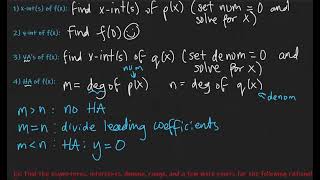 1) x-int(s) of f(x): find x-int(s) of p(x) (set num = 0 and
solve for x)
2) y-int of f(x): find f(0)
3) VA's of f(x): find x-int(s) of q(x) (set denom = 0 and
solve for x)
num
4) HA of f(x): m = deg of p(x) n = deg of q(x)
denom
m > n : no HA
m = n : divide leading coefficients
m < n : HA: y = 0
Ex: Find the asymptotes, intercepts, domain, range, and a few more points for the following rational